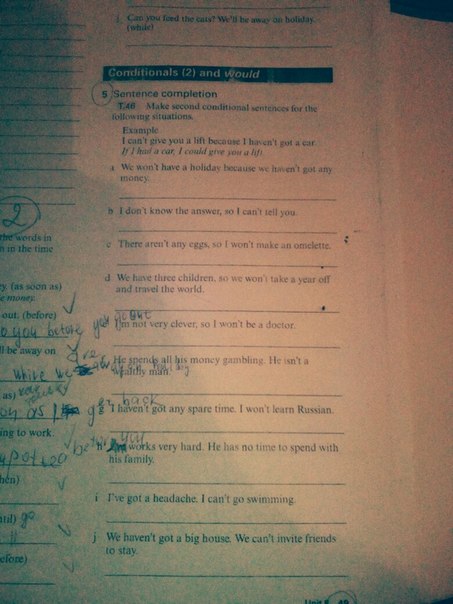 j Can you feed the cats? We'll be away on holiday.
(while)
Conditionals (2) and would
5 Sentence completion
T.46 Make second conditional sentences for the
following situations.
Example
I can't give you a lift because I haven't got a car.
If I had a car, I could give you a lift.
a We won't have a holiday because we haven't got any
money.
b I don't know the answer, so I can't tell you.
c There aren't any eggs, so I won't make an omelette.
d We have three children, so we won't take a year off
and travel the world.
I'm not very clever, so I won't be a doctor.
He spends all his money gambling. He isn't a
wealthy man.
g I haven't got any spare time. I won't learn Russian.
works very hard. He has no time to spend with
his family.
i I've got a headache. I can't go swimming.
j We haven't got a big house. We can't invite friends
to stay.
2
the words in
n in the time
y. (as soon as)
e money.
out. (before)
you before you go out
ll be away on
while we
as)
on as I get back
ing to work.
hen)
ntil) go
efore)